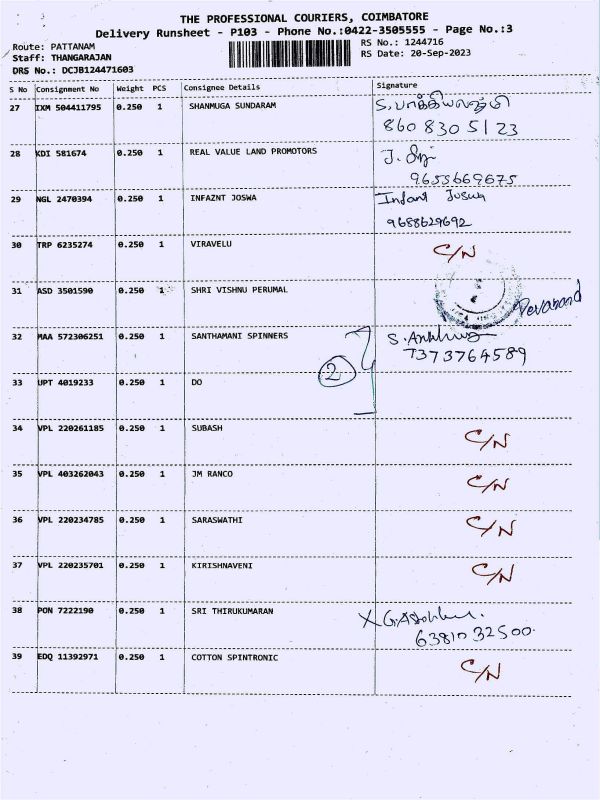 THE PROFESSIONAL COURIERS, COIMBATORE
Delivery Runsheet - P103 - Phone No.:0422-3505555 - Page No.:3
Route: PATTANAM RS No.: 1244716
Staff: THANGARAJAN RS Date: 20-Sep-2023
DRS No.: DCJB124471603
S No Consignment No Weight PCS Consignee Details Signature
27 IXM 504411795 0.250 1 SHANMUGA SUNDARAM
860 830 5123
28 KDI 581674 0.250 1 REAL VALUE LAND PROMOTORS J.
9655669675
29 NGL 2470394 0.250 1 INFAZNT JOSWA Infant Joswa
9688629692
30 TRP 6235274 0.250 1 VIRAVELU C/N
31 ASD 3501590 0.250 1 SHRI VISHNU PERUMAL Devanand
32 MAA 572306251 0.250 1 SANTHAMANI SPINNERS S.
7373764589
2
33 UPT 4019233 0.250 1 DO
34 VPL 220261185 0.250 1 SUBASH C/N
35 VPL 403262043 0.250 1 JM RANCO C/N
36 VPL 220234785 0.250 1 SARASWATHI C/N
37 VPL 220235701 0.250 1 KIRISHNAVENI C/N
38 PON 7222190 0.250 1 SRI THIRUKUMARAN X
6381032500
39 EDQ 11392971 0.250 1 COTTON SPINTRONIC C/N